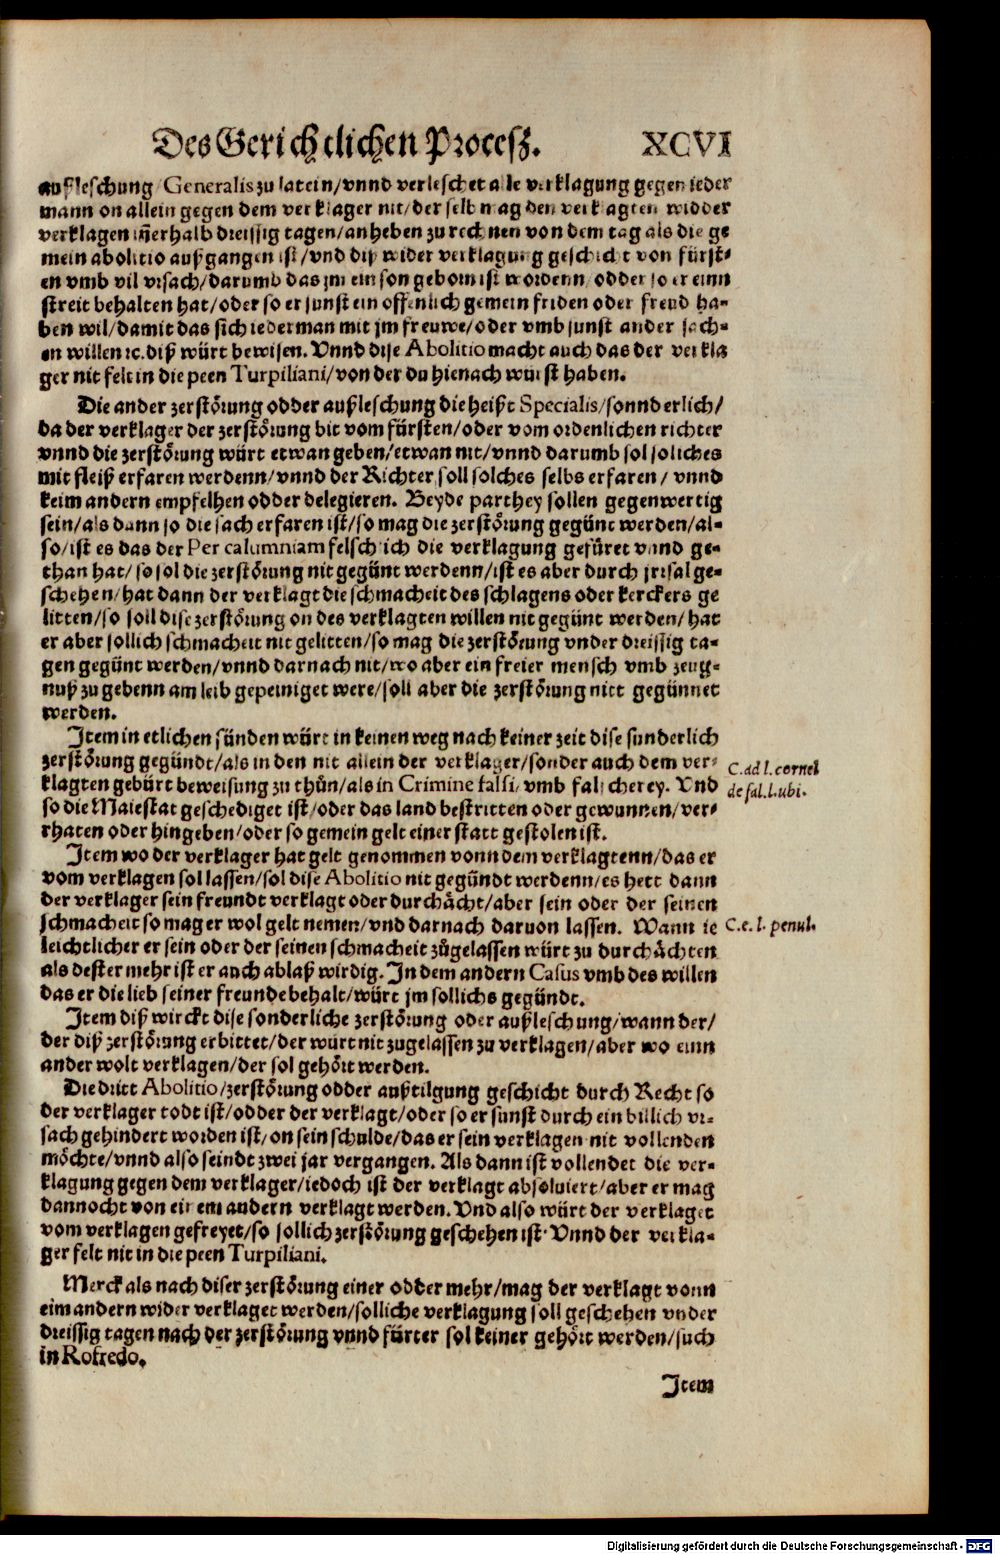 Des Gerichtlichen Procesz. XCVI
außleschung Generalis zu latein/vnnd verleschet alle verklagung gegen ieder
mann on allein gegen dem verklager nit/der selb mag den verklagten widder
verklagen iñerhalb dreissig tagen/anheben zu rechnen von dem tag als die ge
mein abolitio außgangen ist/vnd diß wider verklagung geschicht von fürst-
en vmb vil vrsach/darumb das jm ein son geborn ist wordenn/odder so er einn
streit behalten hat/oder so er sunst ein offenlich gemein friden oder freud ha-
ben wil/damit das sich iederman mit jm freuwe/oder vmb sunst ander sach-
en willen ꝛc. diß würt bewisen. Vnnd dise Abolitio macht auch das der verkla
ger nit felt in die peen Turpiliani/von der du hienach würst haben.
Die ander zerstörung odder außleschung die heißt Specialis/sonnderlich/
da der verklager der zerstörung bit vom fürsten/oder vom ordenlichen richter
vnnd die zerstörung würt etwan geben/etwan nit/vnnd darumb sol soliches
mit fleiß erfaren werdenn/vnnd der Richter soll solches selbs erfaren/vnnd
keim andern empfelhen odder delegieren. Beyde parthey sollen gegenwertig
sein/als dann so die sach erfaren ist/so mag die zerstörung gegünt werden/al-
so/ist es das der Per calumniam felschlich die verklagung gefüret vnnd ge-
than hat/so sol die zerstörung nit gegünt werdenn/ist es aber durch jrrsal ge-
schehen/hat dann der verklagt die schmacheit des schlagens oder kerckers ge
litten/so soll dise zerstörung on des verklagten willen nit gegünt werden/hat
er aber sollich schmacheit nit gelitten/so mag die zerstörung vnder dreissig ta-
gen gegünt werden/vnnd darnach nit/wo aber ein freier mensch vmb zeug-
nuß zu gebenn am leib gepeiniget were/soll aber die zerstörung nitt gegünnet
werden.
Item in etlichen sünden würt in keinen weg nach keiner zeit dise sunderlich
zerstörung gegündt/als in den nit allein der verklager/sonder auch dem ver-
klagten gebürt beweisung zu thůn/als in Crimine falsi/vmb falscherey. Vnd
so die Maiestat geschediget ist/oder das land bestritten oder gewunnen/ver-
rhaten oder hingeben/oder so gemein gelt einer statt gestolen ist.
C. ad l. cornel
de fal. l. ubi.
Item wo der verklager hat gelt genommen vonn dem verklagtenn/das er
vom verklagen sol lassen/sol dise Abolitio nit gegündt werdenn/es hett dann
der verklager sein freundt verklagt oder durchächt/aber sein oder der seinen
schmacheit so mag er wol gelt nemen/vnd darnach daruon lassen. Wann ie
C. e. l. penul.
leichtlicher er sein oder der seinen schmacheit zůgelassen würt zu durchächten
als dester mehr ist er auch ablaß wirdig. In dem andern Casus vmb des willen
das er die lieb seiner freunde behalt/würt jm sollichs gegündt.
Item diß wirckt dise sonderliche zerstörung oder außleschung/wann der/
der diß zerstörung erbittet/der würt nit zugelassen zu verklagen/aber wo einn
ander wolt verklagen/der sol gehört werden.
Die dritt Abolitio/zerstörung odder außtilgung geschicht durch Recht so
der verklager todt ist/odder der verklagt/oder so er sunst durch ein billich vr-
sach gehindert worden ist/on sein schulde/das er sein verklagen nit vollenden
möchte/vnnd also seindt zwei jar vergangen. Als dann ist vollendet die ver-
klagung gegen dem verklager/iedoch ist der verklagt absoluiert/aber er mag
dannocht von einem andern verklagt werden. Vnd also würt der verklaget
vom verklagen gefreyet/so sollich zerstörung geschehen ist. Vnnd der verkla-
ger felt nit in die peen Turpiliani.
Merck als nach diser zerstörung einer odder mehr/mag der verklagt vonn
eim andern wider verklaget werden/solliche verklagung soll geschehen vnder
dreissig tagen nach der zerstörung vnnd fürter sol keiner gehört werden/such
in Rofredo.
Item
Digitalisierung gefördert durch die Deutsche Forschungsgemeinschaft - DFG